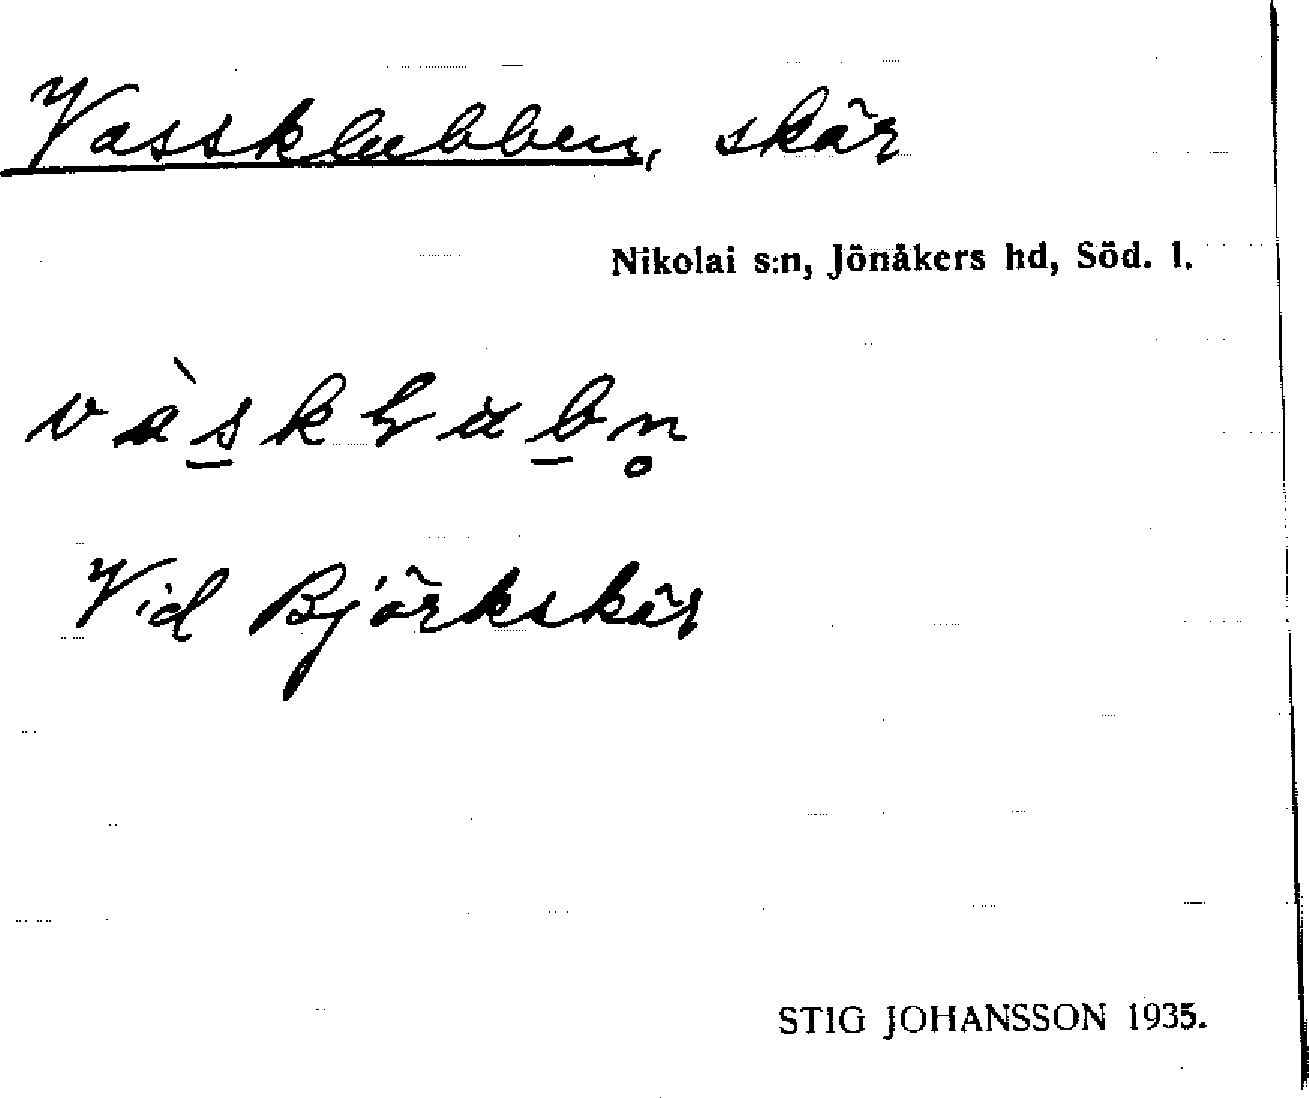 Vassklubben, skär
Nikolai s:n, Jönåkers hd, Söd. l.
Vid Björkskär
STIG JOHANSSON 1935.